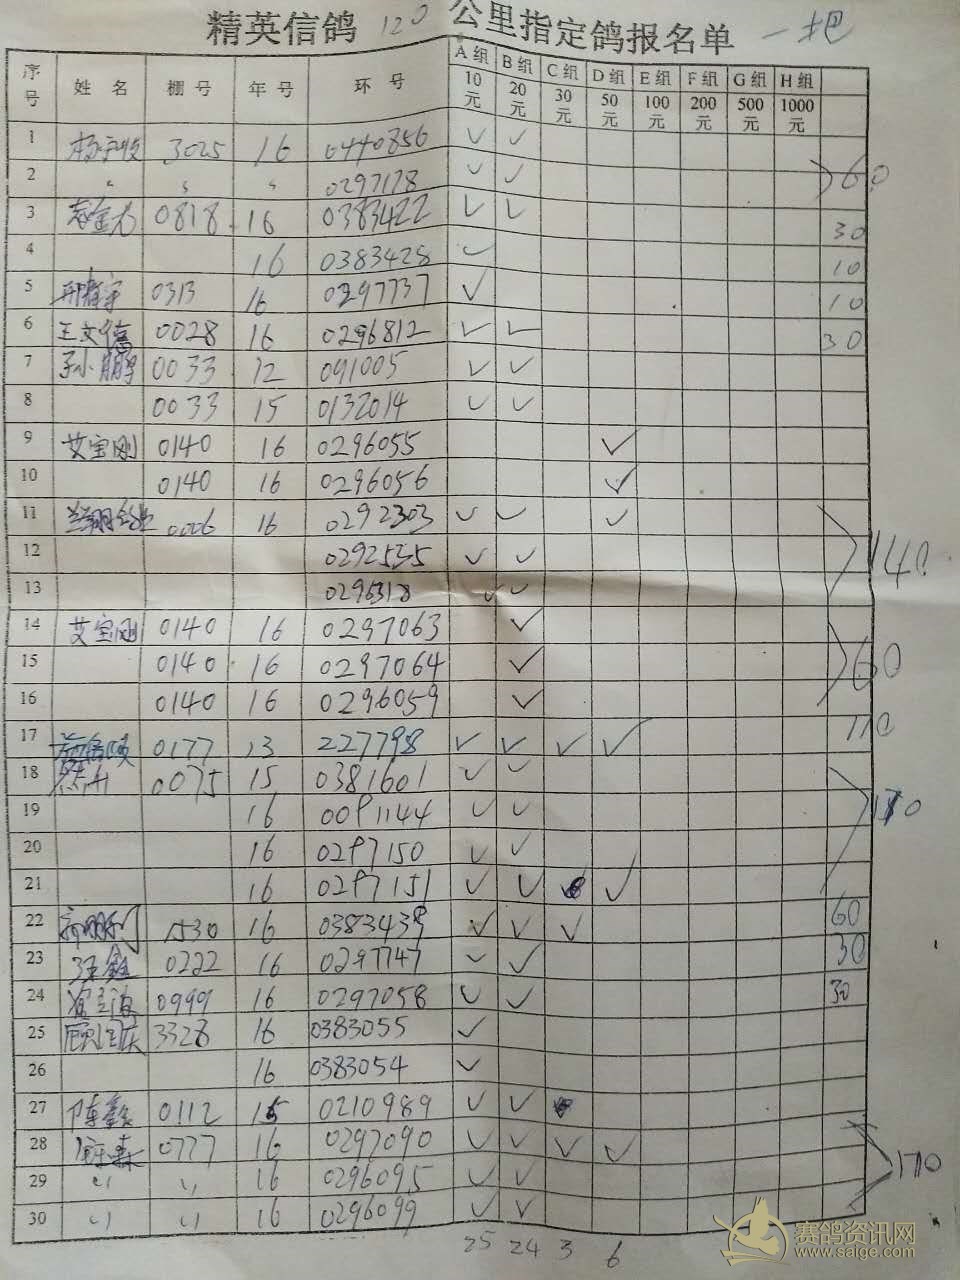 精英信鸽 120 公里指定鸽报名单 一把
序号 姓名 棚号 年号 环号 A组 10元 B组 20元 C组 30元 D组 50元 E组 100元 F组 200元 G组 500元 H组 1000元
1 3025 16 0440856 ✓ ✓
2 〃 〃 〃 0297178 ✓ ✓ 60
3 0818 16 0383422 ✓ ✓ 30
4 16 0383428 ✓ 10
5 0313 16 0297737 ✓ 10
6 王文儒 0028 16 0296812 ✓ ✓ 30
7 孙小鹏 0033 12 091005 ✓ ✓
8 0033 15 0132014 ✓ ✓
9 艾宝刚 0140 16 0296055 ✓
10 0140 16 0296056 ✓
11 0006 16 0292303 ✓ ✓ ✓
12 0292535 ✓ ✓ 140
13 0296318 ✓ ✓
14 艾宝刚 0140 16 0297063 ✓
15 0140 16 0297064 ✓ 60
16 0140 16 0296059 ✓
17 0177 13 227798 ✓ ✓ ✓ ✓ 110
18 0075 15 0381601 ✓ ✓
19 16 0091144 ✓ ✓
20 16 0297150 ✓ ✓
21 16 0297151 ✓ ✓ ✓
22 1530 16 0383439 ✓ ✓ ✓ 60
23 0222 16 0297747 ✓ ✓ 30
24 0999 16 0297058 ✓ ✓ 30
25 3328 16 0383055 ✓
26 16 0383054 ✓
27 0112 15 0210989 ✓ ✓
28 0777 16 0297090 ✓ ✓ ✓ ✓
29 〃 〃 16 0296095 ✓ ✓ 170
30 〃 〃 16 0296099 ✓ ✓
25 24 3 6
赛鸽资讯网
www.saige.com